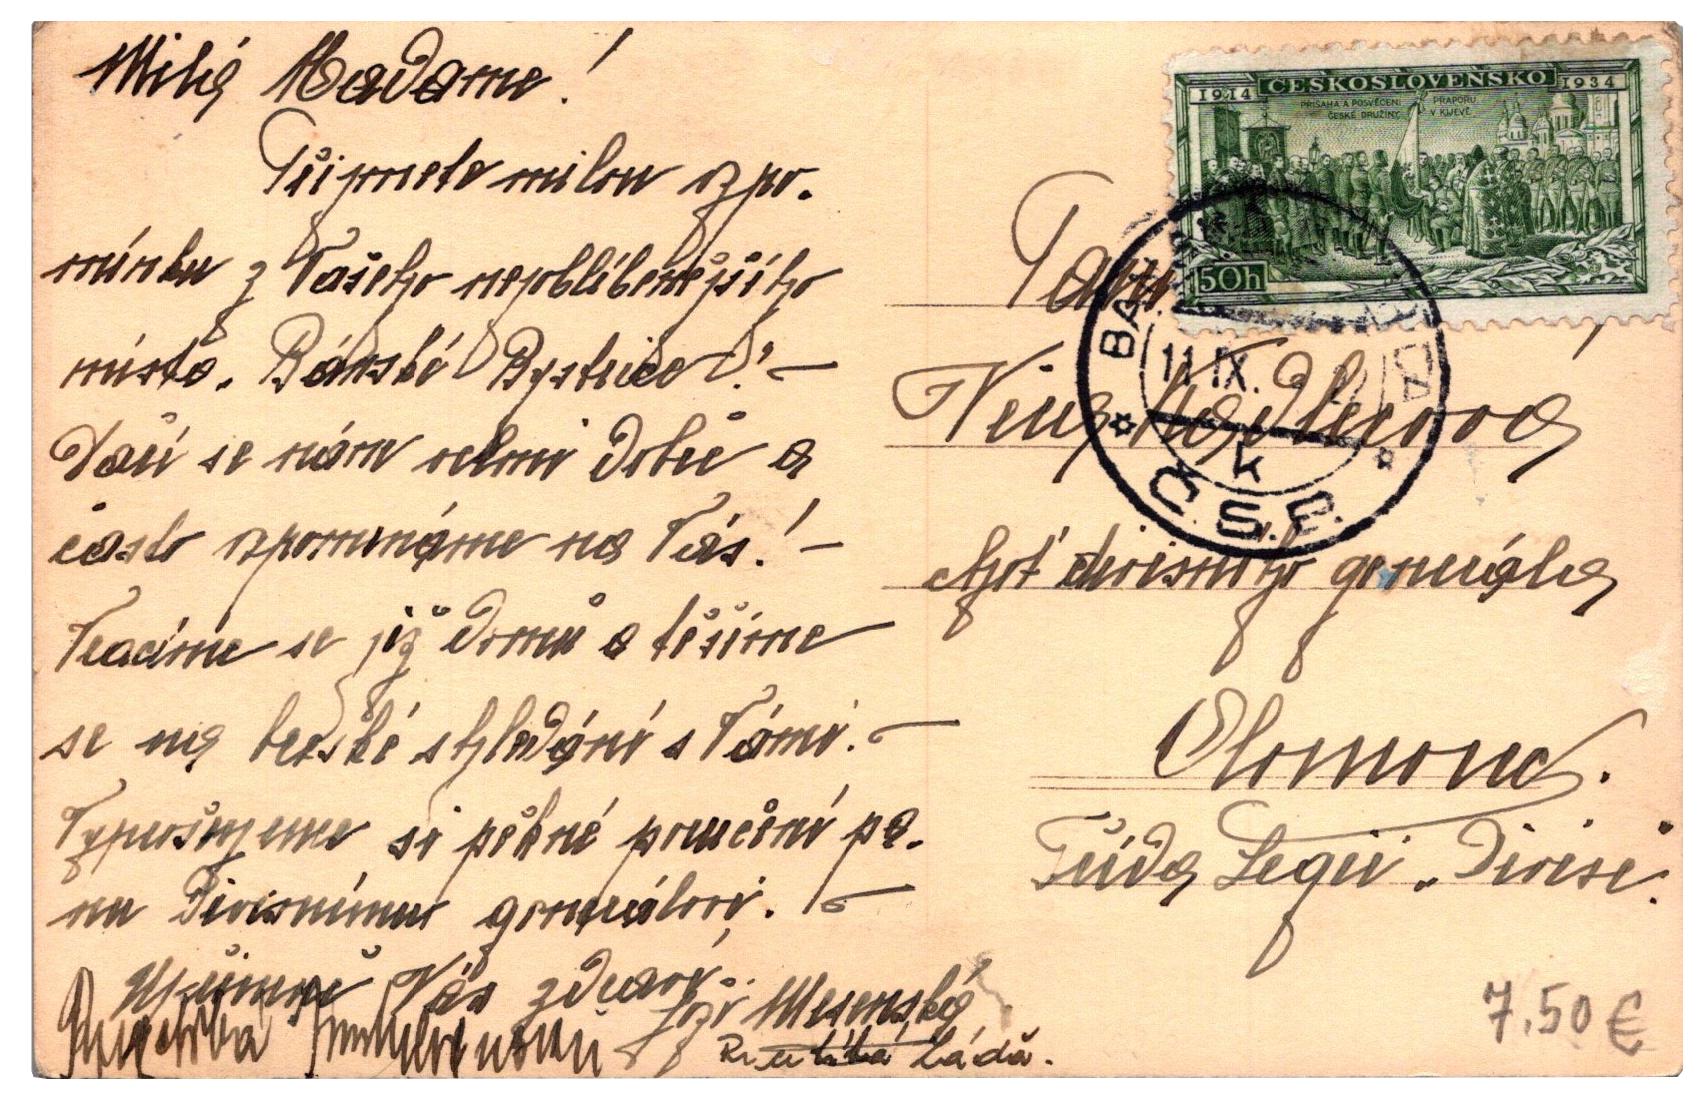 Milá Madame!
Přijmete milou vzpo-
mínku z Vašeho nejoblíbenějšího
místa. Bánské Bystrice!
Daří se nám velmi dobře a
často vzpomínáme na Vás!
Vracíme se již domů a těšíme
se na brzské shledání s Vámi.
Vyprošujeme si pěkné poručení pa-
nu Divisnímu generálovi.
Upřímně Vás zdraví
Mesenský
Láďa.
1914 ČESKOSLOVENSKO 1934
PŘÍSAHA A POSVĚCENÍ PRAPORU
ČESKÉ DRUŽINY V KIJEVĚ
50h
11.IX.
k
Č.S.P.
Choť divisního generála
Olomouc.
Třída Legií "Divise".
7.50 €